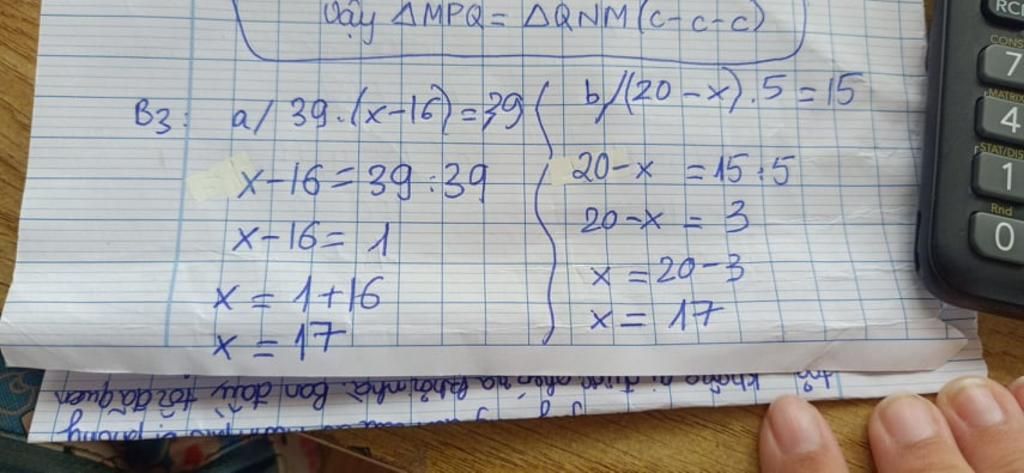 Vậy △MPQ = △QNM (c-c-c)
B3: a/ 39.(x-16)=39
x-16=39:39
x-16= 1
x = 1+16
x = 17
b/(20-x).5=15
20-x = 15:5
20-x = 3
x = 20-3
x = 17
RCL
CONST
7
MATRIX
4
STAT/DIS
1
Rnd
0